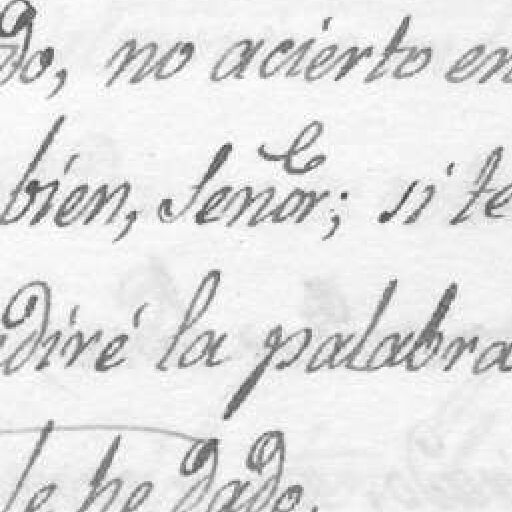 do, no acierto en
bien, Señor; si te
diré la palabra
le he dado.